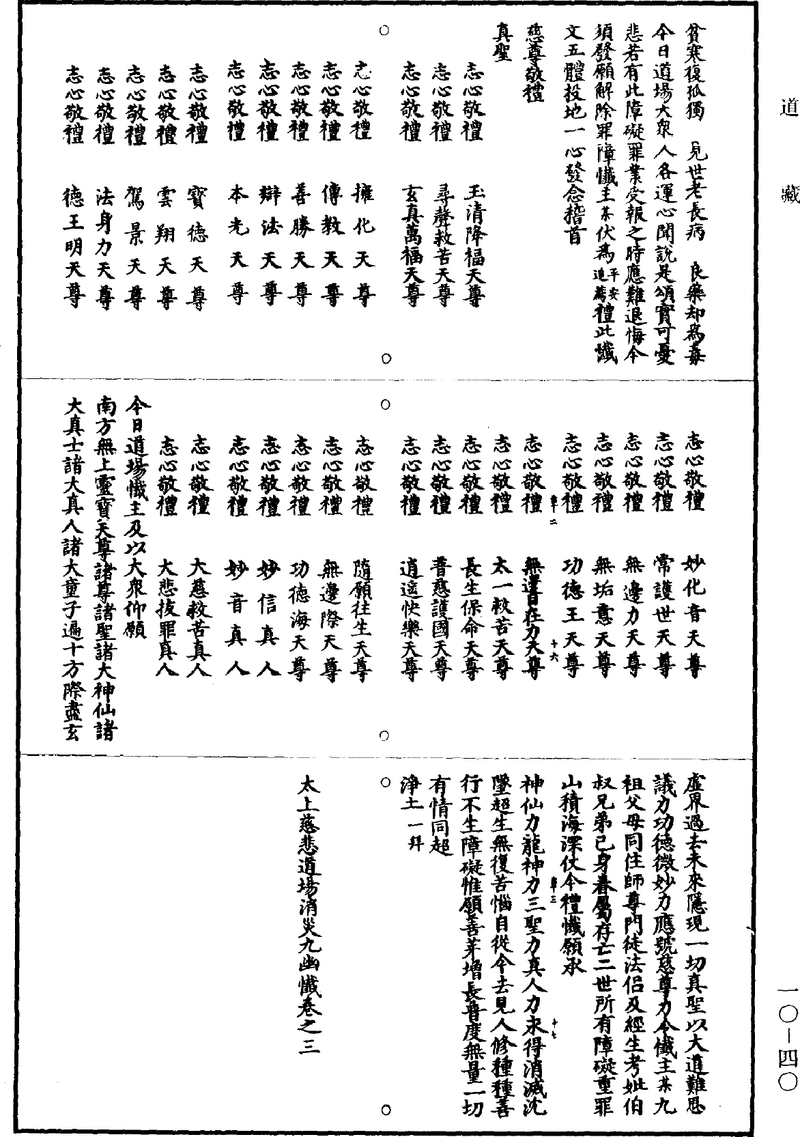 道藏
貧寒復孤獨　見世老長病　良藥却為毒
今日道場大衆人各運心聞說是頌實可憂
悲若有此障礙罪業受報之時應難退悔今
須發願解除罪障懺主某伏為平安追薦禮此懺
文五體投地一心發念稽首
慈尊敬禮
真聖
志心敬禮　玉清降福天尊
志心敬禮　尋聲救苦天尊
志心敬禮　玄真萬福天尊
志心敬禮　擁化天尊
志心敬禮　傳教天尊
志心敬禮　善勝天尊
志心敬禮　辯法天尊
志心敬禮　本光天尊
志心敬禮　寶德天尊
志心敬禮　雲翔天尊
志心敬禮　駕景天尊
志心敬禮　法身力天尊
志心敬禮　德王明天尊
志心敬禮　妙化音天尊
志心敬禮　常護世天尊
志心敬禮　無邊力天尊
志心敬禮　無垢意天尊
志心敬禮　功德王天尊
志心敬禮　無邊自在力天尊
志心敬禮　太一救苦天尊
志心敬禮　長生保命天尊
志心敬禮　普慈護國天尊
志心敬禮　逍遥快樂天尊
志心敬禮　隨願往生天尊
志心敬禮　無邊際天尊
志心敬禮　功德海天尊
志心敬禮　妙信真人
志心敬禮　妙音真人
志心敬禮　大慈救苦真人
志心敬禮　大悲拔罪真人
今日道場懺主及以大衆仰願
南方無上靈寶天尊諸尊諸聖諸大神仙諸
大真士諸大真人諸大童子遍十方際盡玄
虛界過去未來隱現一切真聖以大道難思
議力功德微妙力應號慈尊力令懺主某九
祖父母同住師尊門徒法侶及經生考妣伯
叔兄弟己身眷屬存亡二世所有障礙重罪
山積海深仗今禮懺願承
神仙力龍神力三聖力真人力求得消滅沈
墜超生無復苦惱自從今去見人修種種善
行不生障礙惟願善芽增長普度無量一切
有情同超
淨土一拜
太上慈悲道場消災九幽懺卷之三
一〇—四〇